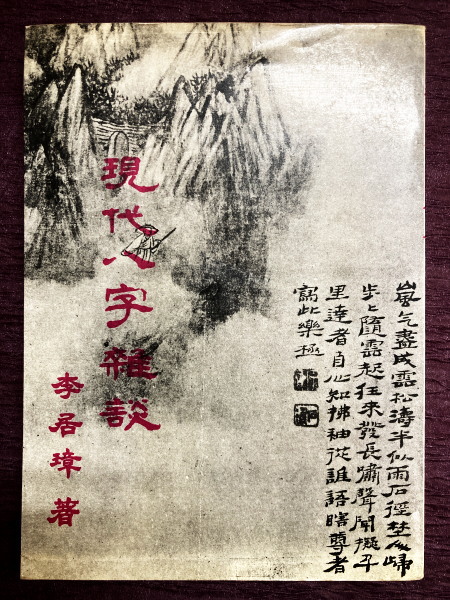 現代八字雜談
李居璋著
嵐气盡成雲松濤半似雨石徑埜人歸
步〻隨雲起狂來發長嘯聲聞擬千
里達者自心知拂袖從誰語瞎尊者
寫此樂極